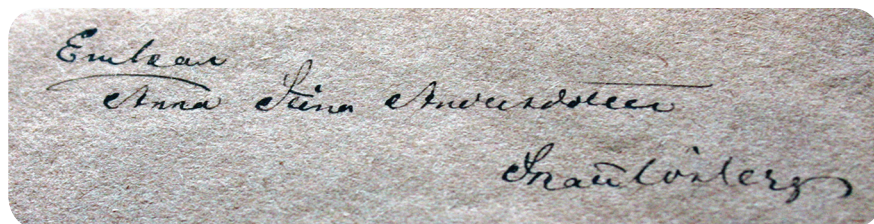 Enkan
Anna Stina Andersdotter
Skattlösberg